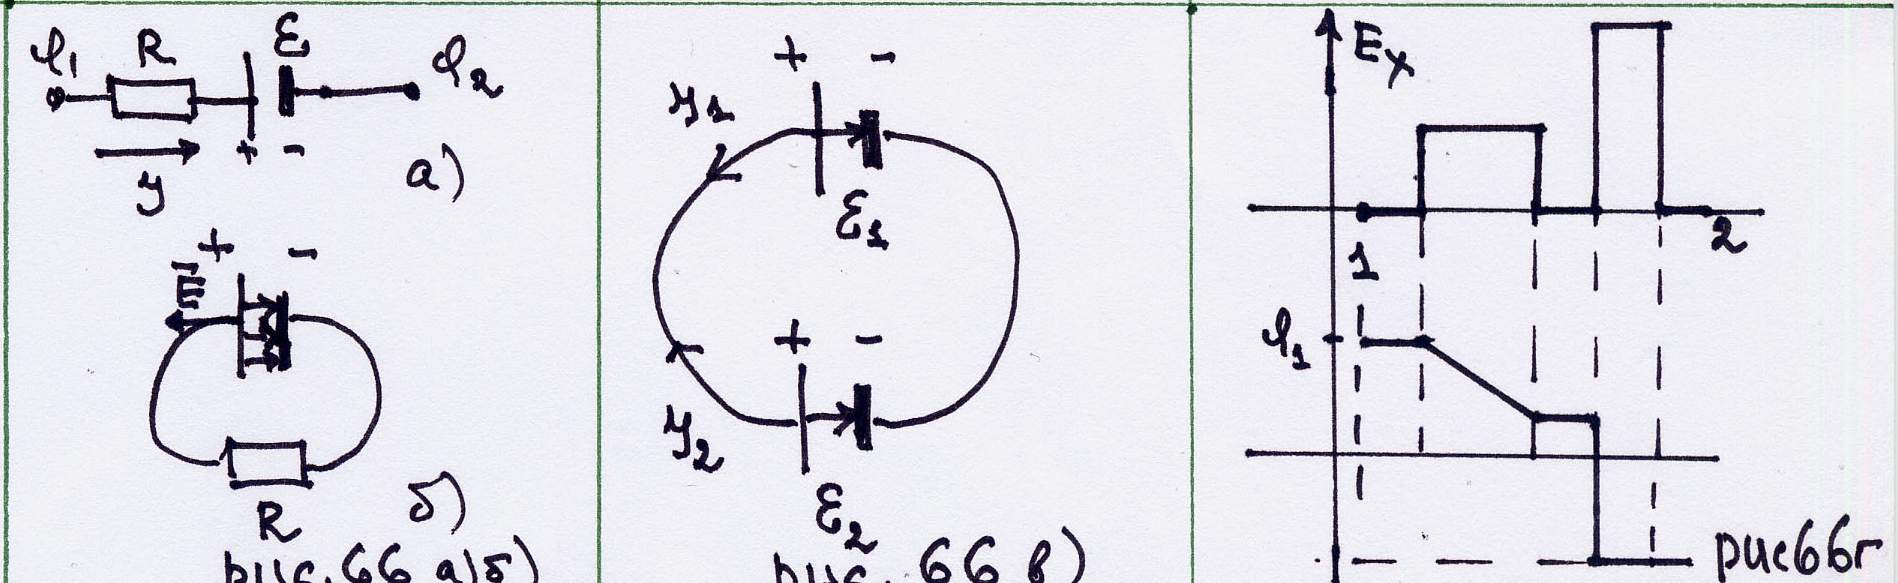 φ₁ R ℰ φ₂
+ -
У а)
+ -
E⃗
R б)
рис. 66 а)б)
+ -
У₁
ℰ₁
+ -
У₂
ℰ₂
рис. 66 в)
Eₓ
1 2
φ₁
рис66г